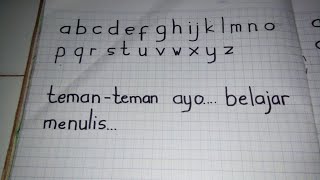 a b c d e f g h i j k l m n o
p q r s t u v w x y z
teman-teman ayo.... belajar
menulis...